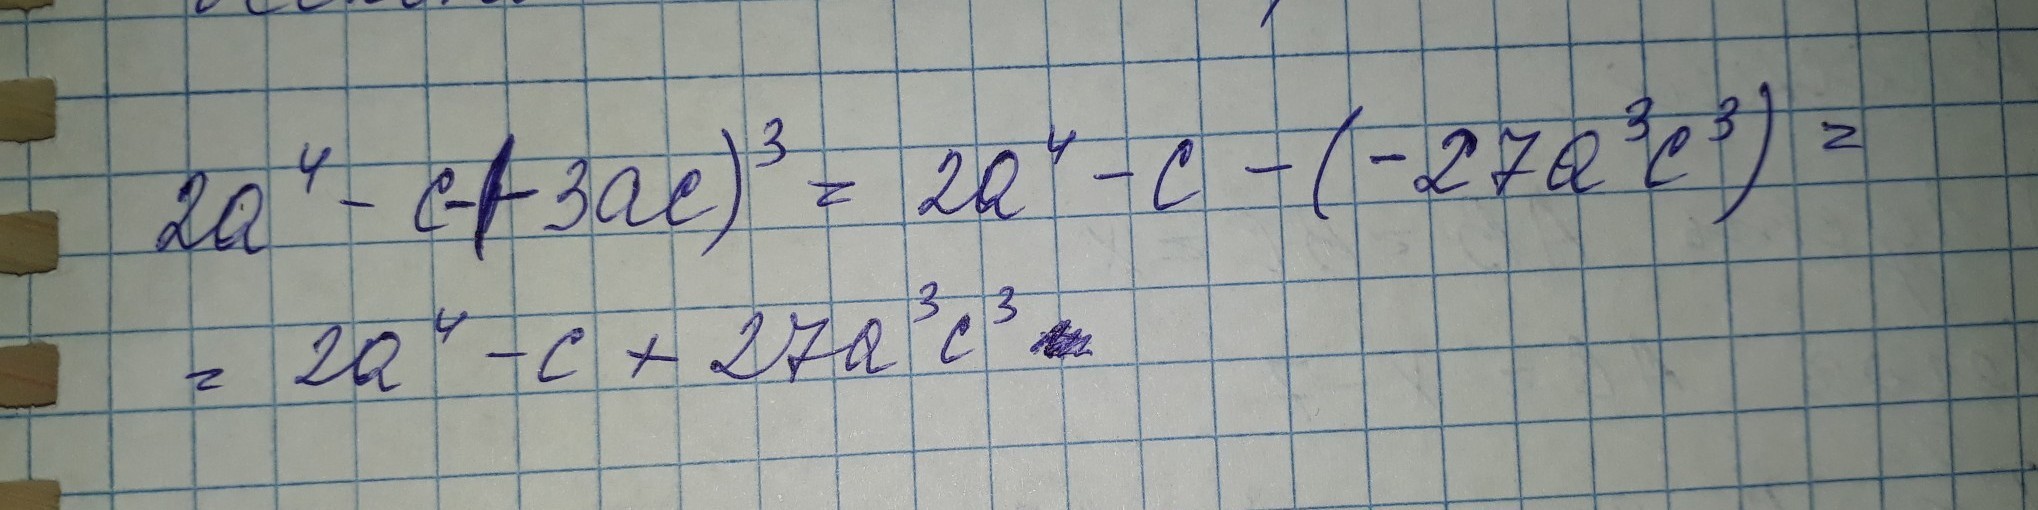 2a⁴ - c-(-3ac)³ = 2a⁴ - c - (-27a³c³) =
= 2a⁴ - c + 27a³c³